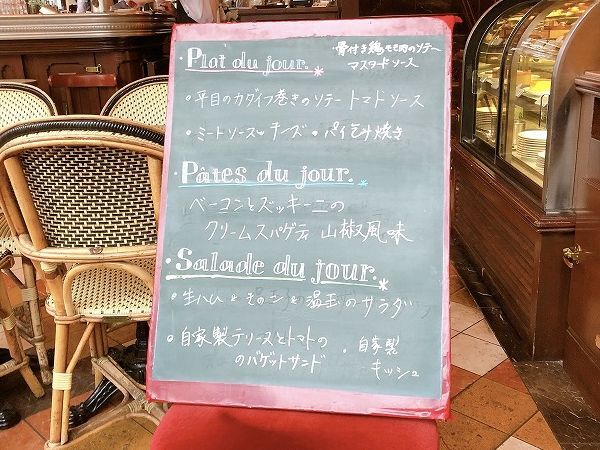 ・Plat du jour.
骨付き鶏もも肉のソテー
マスタードソース
・平目のカダイフ巻きのソテー トマトソース
・ミートソースとチーズ・パイ包み焼き
・Pâtes du jour.
ベーコンとズッキーニの
クリームスパゲティ 山椒風味
・Salade du jour.
・生ハムときのこと温玉のサラダ
・自家製テリーヌとトマトの
のバゲットサンド
・自家製
キッシュ